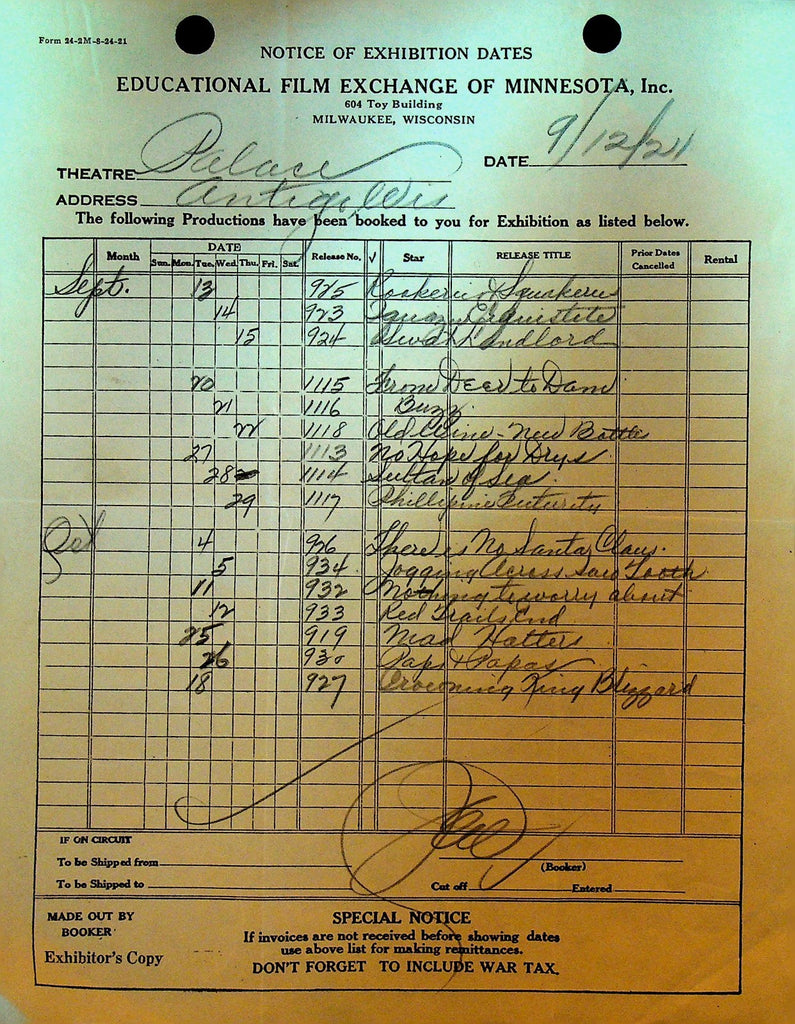 Form 24-2M-8-24-21
NOTICE OF EXHIBITION DATES
EDUCATIONAL FILM EXCHANGE OF MINNESOTA, Inc.
604 Toy Building
MILWAUKEE, WISCONSIN
THEATRE Palace DATE 9/12/21
ADDRESS Antigo, Wis
The following Productions have been booked to you for Exhibition as listed below.
Month DATE Release No. √ Star RELEASE TITLE Prior Dates Cancelled Rental
Sun. Mon. Tue. Wed. Thu. Fri. Sat.
Sept. 13 925 Rookeries & Squakeries
14 923
15 924 Landlord
20 1115 From Deer to Dam
21 1116 Buzz
22 1118 Old Wine - New Bottles
27 1113 No Hope for Drys
28 1114 Sultan of Sea
29 1117 Phillipine Futurity
Oct 4 926 There is No Santa Claus.
5 934 Jogging Across Saw Tooth
11 932 Nothing to worry about
12 933 Red Trails End
25 919 Mad Hatters
26 930 Paps & Papas
18 927 Crowning King Blizzard
IF ON CIRCUIT
To be Shipped from
(Booker)
To be Shipped to Cut off Entered
MADE OUT BY BOOKER
Exhibitor's Copy
SPECIAL NOTICE
If invoices are not received before showing dates
use above list for making remittances.
DON'T FORGET TO INCLUDE WAR TAX.